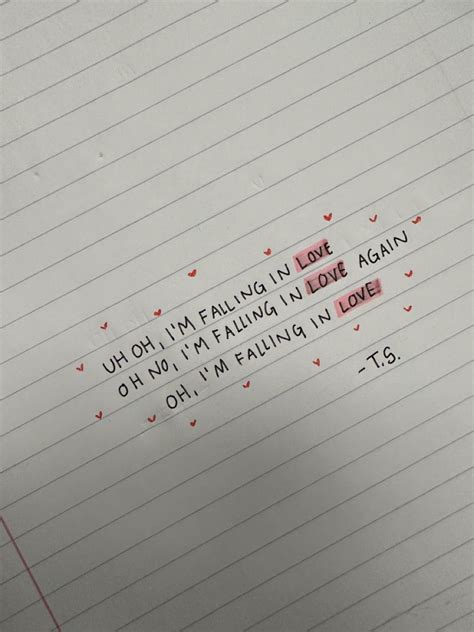 UH OH, I'M FALLING IN LOVE
OH NO, I'M FALLING IN LOVE AGAIN
OH, I'M FALLING IN LOVE.
-T.S.